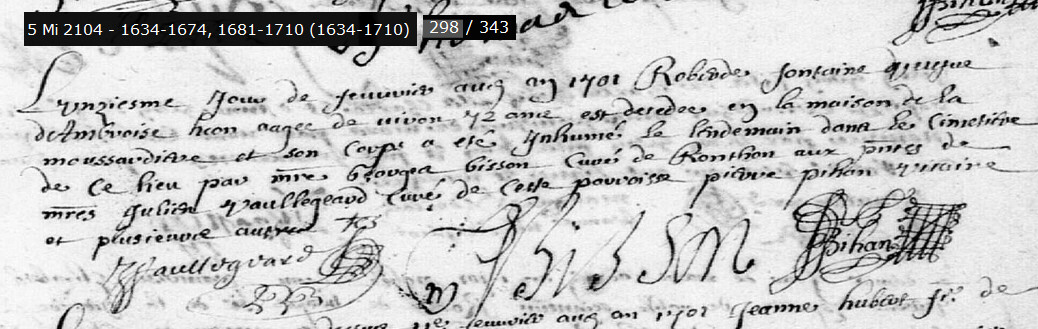 5 Mi 2104 - 1634-1674, 1681-1710 (1634-1710) 298 / 343
Pihan
L'unziesme Jour de feuvrier aud an 1701 Roberde fontaine
d'Ambroise huon aagee de viron 72 ans est decedee en la maison de la
moussardiere et son corps a eté Inhumé le lendemain dans le Cimetiere
de Ce lieu par mre Georges bisson Curé de Ronthon aux pnces de
mres Julien Vaullegeard Curé de Cette parroisse pierre pihan vicaire
et plusieurs autres
Vaullegeard Bisson Pihan
feuvrier aud an 1701 Jeanne hubert fe de